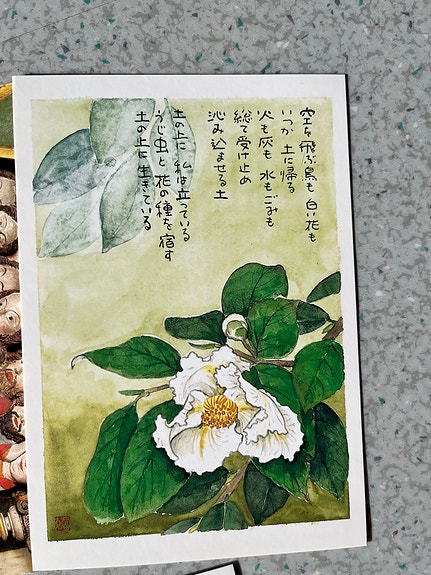 空を飛ぶ鳥も 白い花も
いつか 土に帰る
火も灰も 水もごみも
総て受け止め
沁み込ませる土
土の上に 私は立っている
うじ虫と 花の種を宿す
土の上に生きている